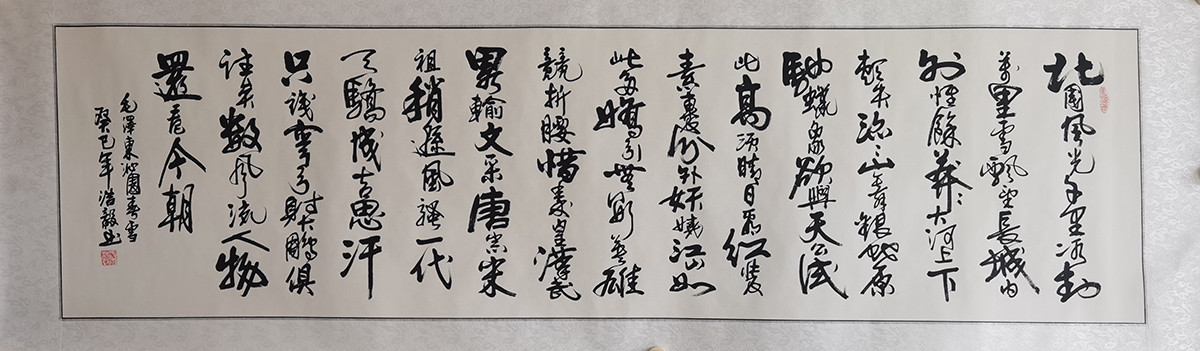 北國風光千里冰封
萬里雪飄望長城內
外惟餘莽々大河上下
頓失滔々山舞銀蛇原
馳蠟象欲與天公試
比高須晴日看紅裝
素裹分外妖嬈江山如
此多嬌引無數英雄
競折腰惜秦皇漢武
畧輸文采唐宗宋
祖稍遜風騷一代
天驕成吉思汗
只識彎弓射大雕俱
往矣數風流人物
還看今朝
毛澤東沁園春雪
癸巳年 浩毅書